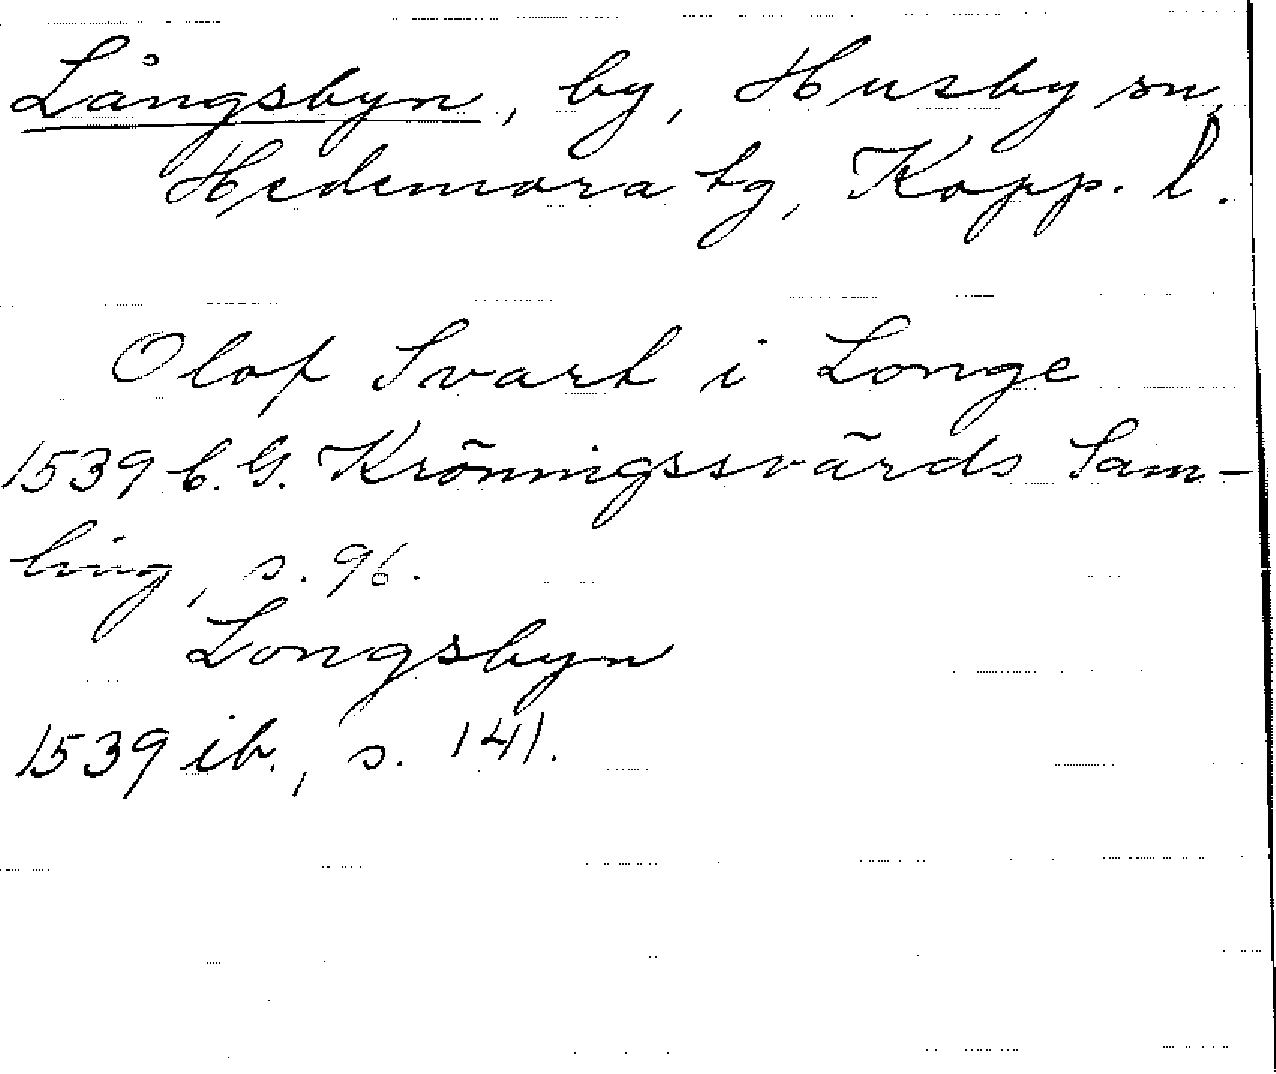 Långsbyn, by, Husby sn,
Hedemora tg, Kopp. l.
Olof Svart i Longe
1539 C. G. Kröningssvärds Sam-
ling, s. 96.
Longsbyn
1539 ib., s. 141.